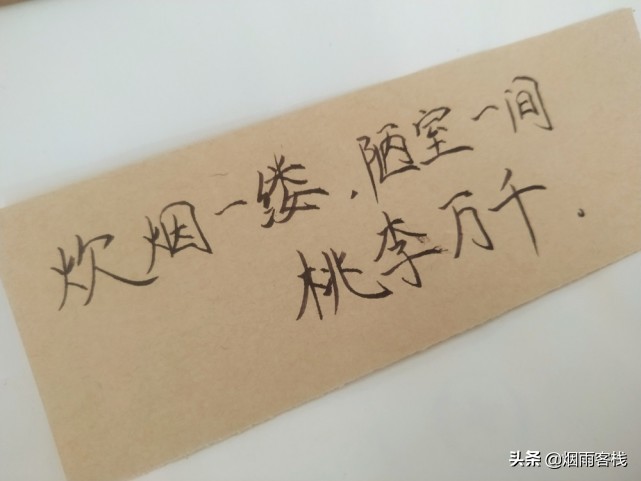 炊烟一缕，陋室一间
桃李万千.
头条 @烟雨客栈